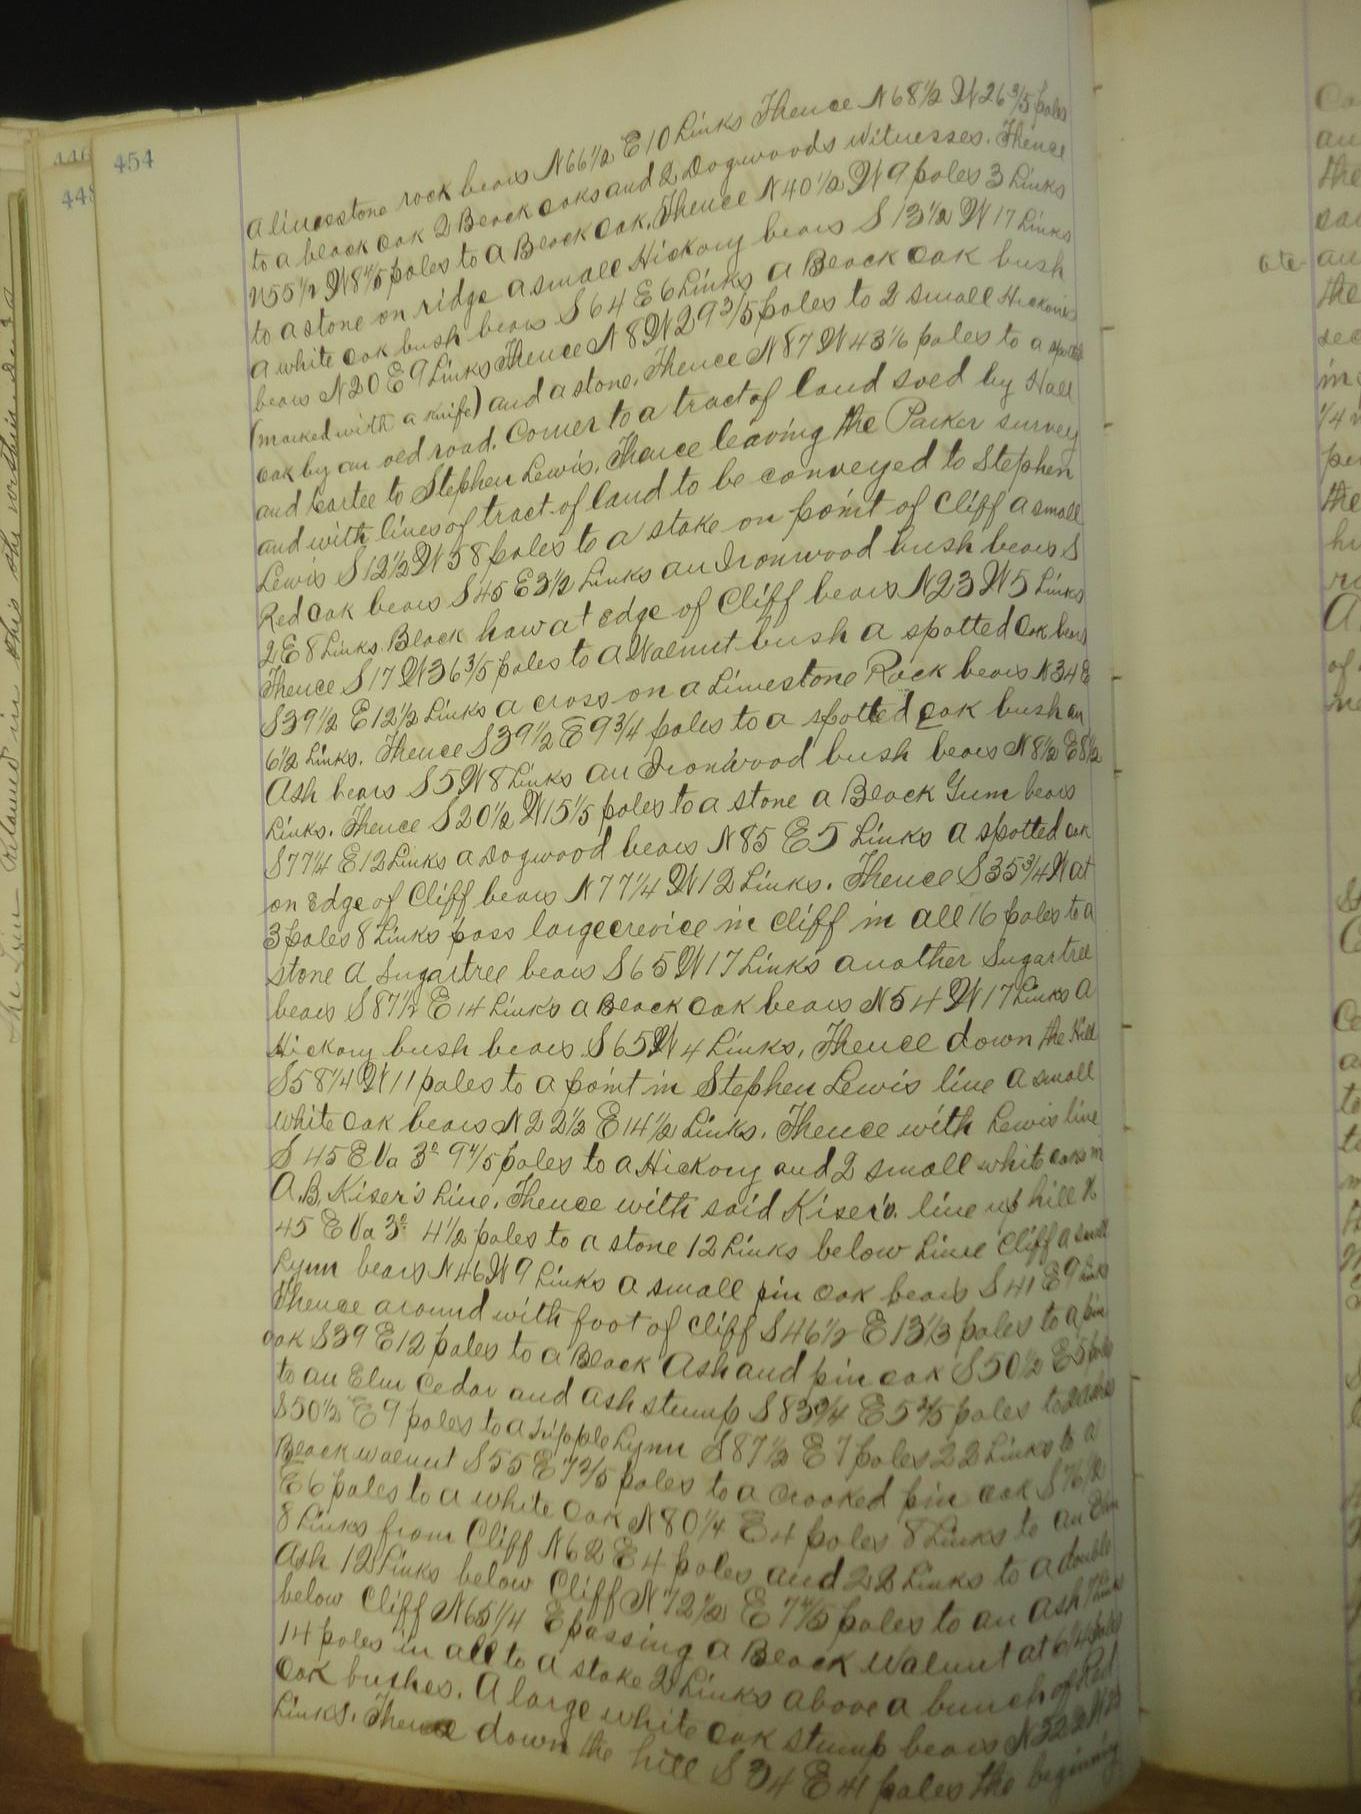 454
a limestone rock bears N66½ E10 Links Thence N68½ W26⅗ poles
to a black oak 2 Black oaks and 2 Dogwoods witnesses. Thence
N55½ W8⅘ poles to a Black Oak. Thence N40½ W9 poles 3 Links
to a stone on ridge a small Hickory bears S13½ W17 Links
a white oak bush bears S64 E6 Links a Black Oak bush
bears N20 E9 Links Thence N8 W29⅗ poles to 2 small Hickories
(marked with a knife) and a stone. Thence N87 W43⅙ poles to a spotted
oak by an old road. Corner to a tract of land sold by Hall
and Cartee to Stephen Lewis. Thence leaving the Parker survey
and with lines of tract of land to be conveyed to Stephen
Lewis S12½ W58 poles to a stake on point of Cliff a small
Red Oak bears S45 E3½ Links an Ironwood bush bears S
2 E8 Links. Black haw at edge of Cliff bears N23 W5 Links
Thence S17 W36⅗ poles to a Walnut bush a spotted Oak bears
S39½ E12½ Links a cross on a Limestone Rock bears N34 E
6½ Links. Thence S39½ E9¾ poles to a spotted oak bush an
Ash bears S5 W8 Links an Ironwood bush bears N8½ E8½
Links. Thence S20½ W15⅕ poles to a stone a Black Gum bears
S77¼ E12 Links a Dogwood bears N85 E5 Links a spotted oak
on edge of Cliff bears N77¼ W12 Links. Thence S35¾ W at
3 poles 8 Links pass large crevice in cliff in all 16 poles to a
stone a Sugartree bears S65 W17 Links another Sugartree
bears S87½ E14 Links a Black Oak bears N54 W17 Links a
Hickory bush bears S65 W4 Links, Thence down the Hill
S58¼ W11 poles to a point in Stephen Lewis line a small
white Oak bears N22½ E14½ Links. Thence with Lewis line
S 45 E Va 3° 9⅘ poles to a Hickory and 2 small white oaks in
A.B. Kiser's Line. Thence with said Kiser's line up hill N
45 E Va 3° 4½ poles to a stone 12 Links below Lime Cliff a small
Lynn bears N46 W9 Links a small pin Oak bears S41 E9 Links
Thence around with foot of cliff S46½ E13⅓ poles to a pin
oak S39 E12 poles to a Black Ash and pin oak S50½ E5 poles
to an Elm Cedar and ash stump S83¾ E5⅖ poles to
S50½ E9 poles to a Lynn S87½ E7 poles 22 Links to a
Black walnut S55 E7⅖ poles to a crooked pin oak S76½
E6 poles to a white Oak N80¼ E4 poles 8 Links to an Elm
8 Links from Cliff N62 E4 poles and 22 Links to a double
Ash 12 Links below Cliff N72½ E7⅘ poles to an ash 7 Links
below Cliff N65¼ E passing a Black Walnut at poles
14 poles in all to a stake 2 Links above a bunch of Red
Oak bushes. A large white Oak stump bears
Links. Thence down the hill S34 E41 poles the beginning